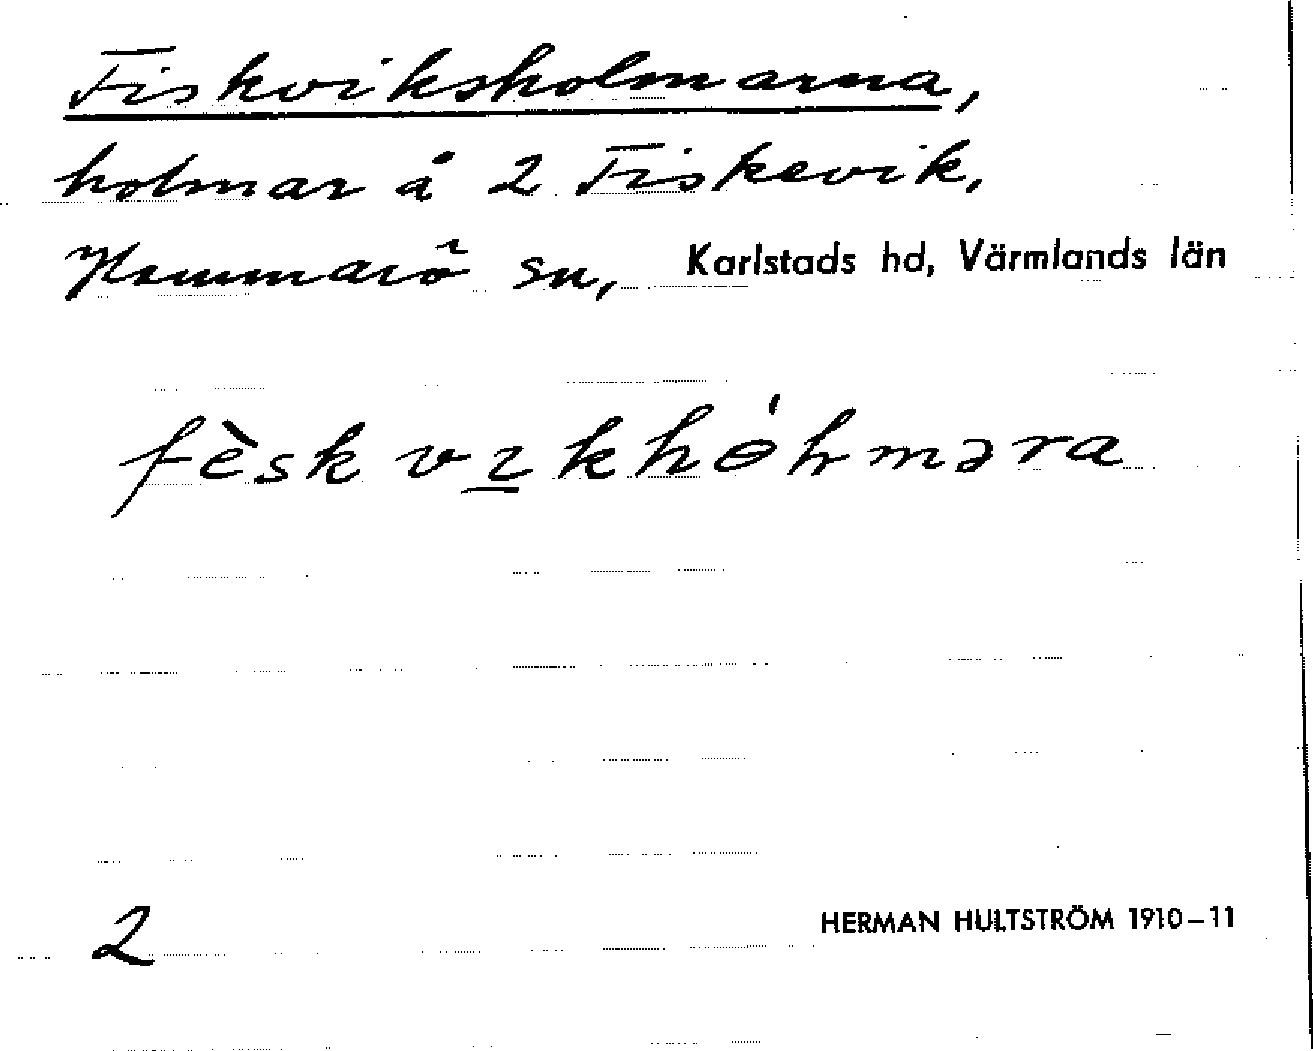 Fiskviksholmarna,
holmar å 2 Fiskevik,
Hammarö sn, Karlstads hd, Värmlands län
fèsk vɪkhɵ́hməra
2
HERMAN HULTSTRÖM 1910–11